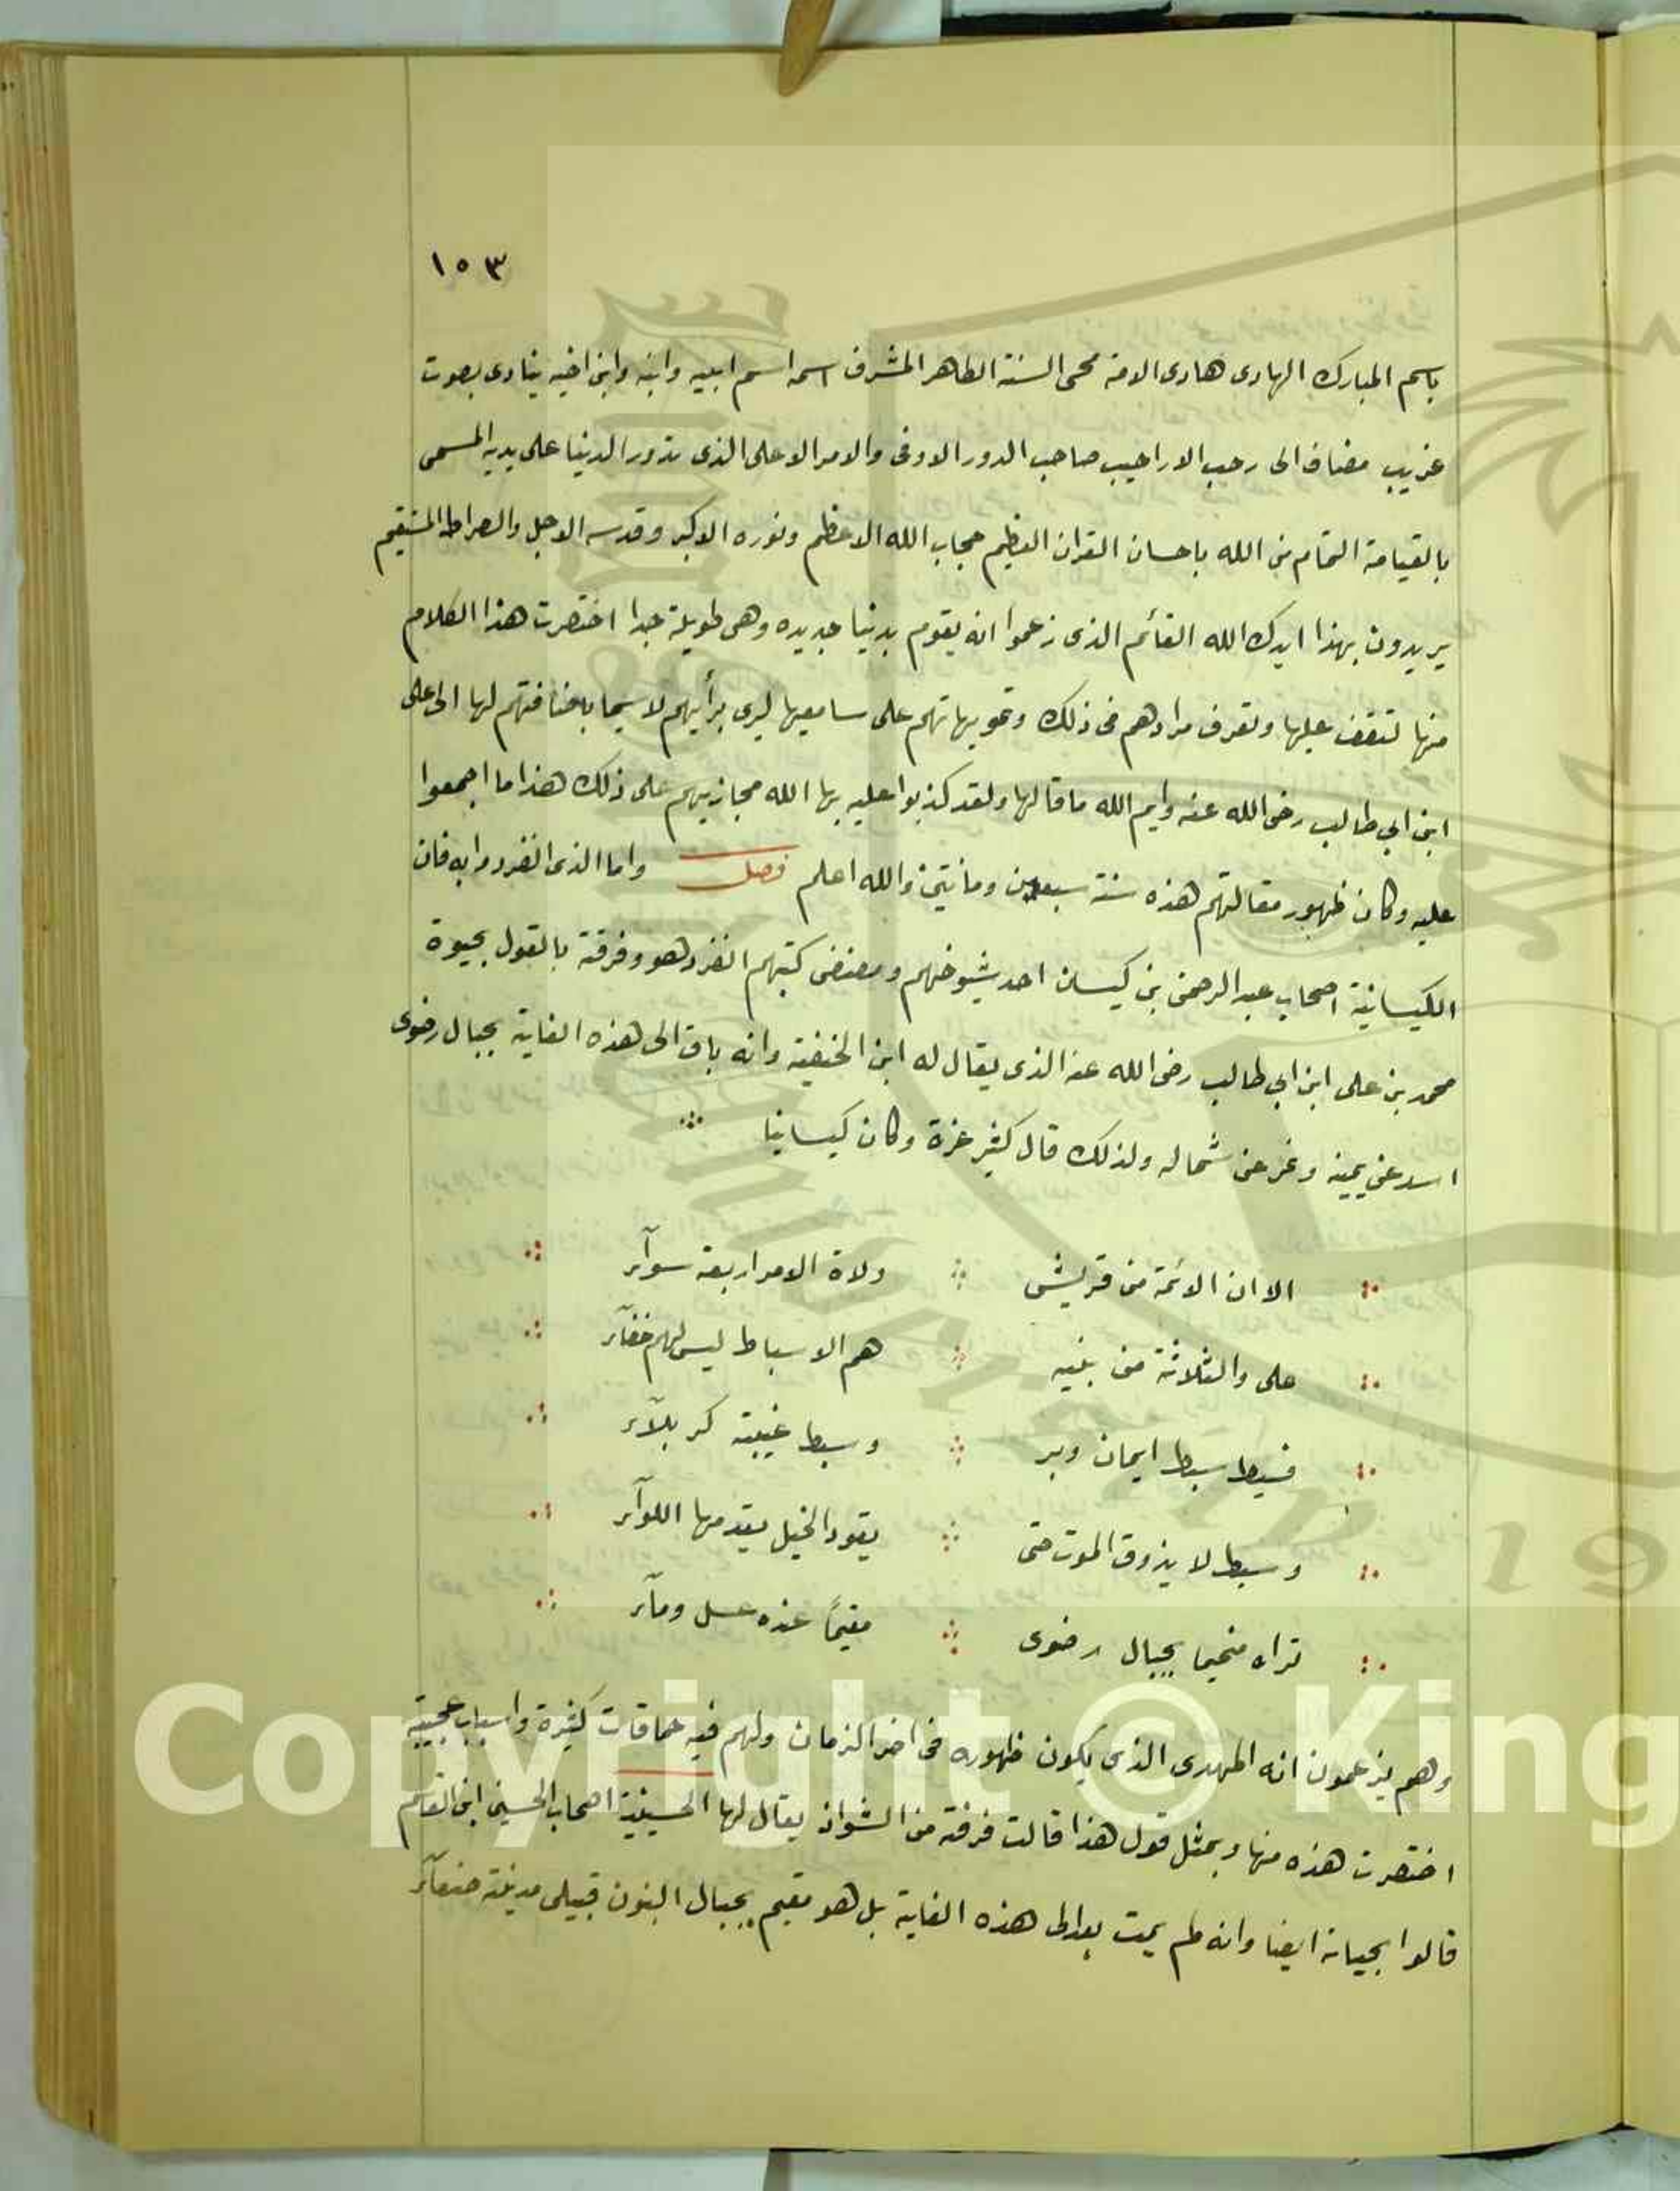 ١٥٣
باسم المبارك الهادى هادى الامة محى السنة الطاهر المشرف اسمه اسم ابيه وابنه وابن اخيه ينادى بصوت
غريب مضاف الى رحب الاراحيب صاحب الدور الاوفى والامر الاعلى الذى تدور الدنيا على يديه المسمى
بالقيامة التمام من الله باحسان القران العظيم حجاب الله الاعظم ونوره الاكبر وقدسه الاجل والصراط المستقيم
يريدون بهذا ايدك الله القائم الذى زعموا انه يقوم بدنيا جديده وهى طويلة جدا اختصرت هذا الكلام
منها لتقف عليها وتعرف مرادهم فى ذلك وتمويهاتهم على سامعيها ليرى برأيهم لا سيما باضافتهم لها الى على
ابن ابي طالب رضى الله عنه وايم الله ما قالها ولقد كذبوا عليه بها الله مجازيهم على ذلك هذا ما اجمعوا
عليه وكان ظهور مقالتهم هذه سنة سبعين ومائتين والله اعلم فصل واما الذى انفردوا به فان
الكيسانية اصحاب عبد الرحمن بن كيسان احد شيوخهم ومصنفى كتبهم انفرد هو وفرقة بالقول بحيوة
محمد بن على ابن ابي طالب رضى الله عنه الذى يقال له ابن الحنفية وانه باق الى هذه الغاية بجبال رضوى
اسد عن يمينه ونمر عن شماله ولذلك قال كثير عزة وكان كيسانيا
الا ان الائمة من قريش ولاة الامر اربعة سوآء
على والثلاثة من بنيه هم الاسباط ليس لهم خفآء
فسبط سبط ايمان وبر وسبط غيبته كربلآء
وسبط لا يذوق الموت حتى يقود الخيل يقدمها اللوآء
تراه مخيما بجبال رضوى مقيمًا عنده عسل ومآء
وهم يزعمون انه المهدى الذى يكون ظهوره فى اخر الزمان ولهم فيه حماقات كثيرة واسباب عجيبة
اختصرت هذه منها وبمثل قول هذا قالت فرقة من الشواذ يقال لها الحسينية اصحاب الحسين ابن القاسم
قالوا بحياته ايضا وانه لم يمت بعد الى هذه الغاية بل هو مقيم بجبال البنون قبيلى مدينة صنعآء